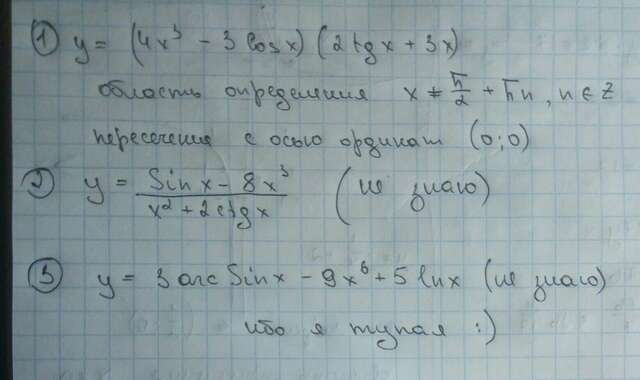 ① y = (4x³ - 3 cos x) (2 tg x + 3x)
область определения x ≠ π/2 + πn, n ∈ Z
пересечения с осью ординат (0;0)
② y = (sin x - 8x³)/(x² + 2ctg x) (не знаю)
③ y = 3 arcsin x - 9x⁶ + 5 ln x (не знаю)
ибо я тупая :)